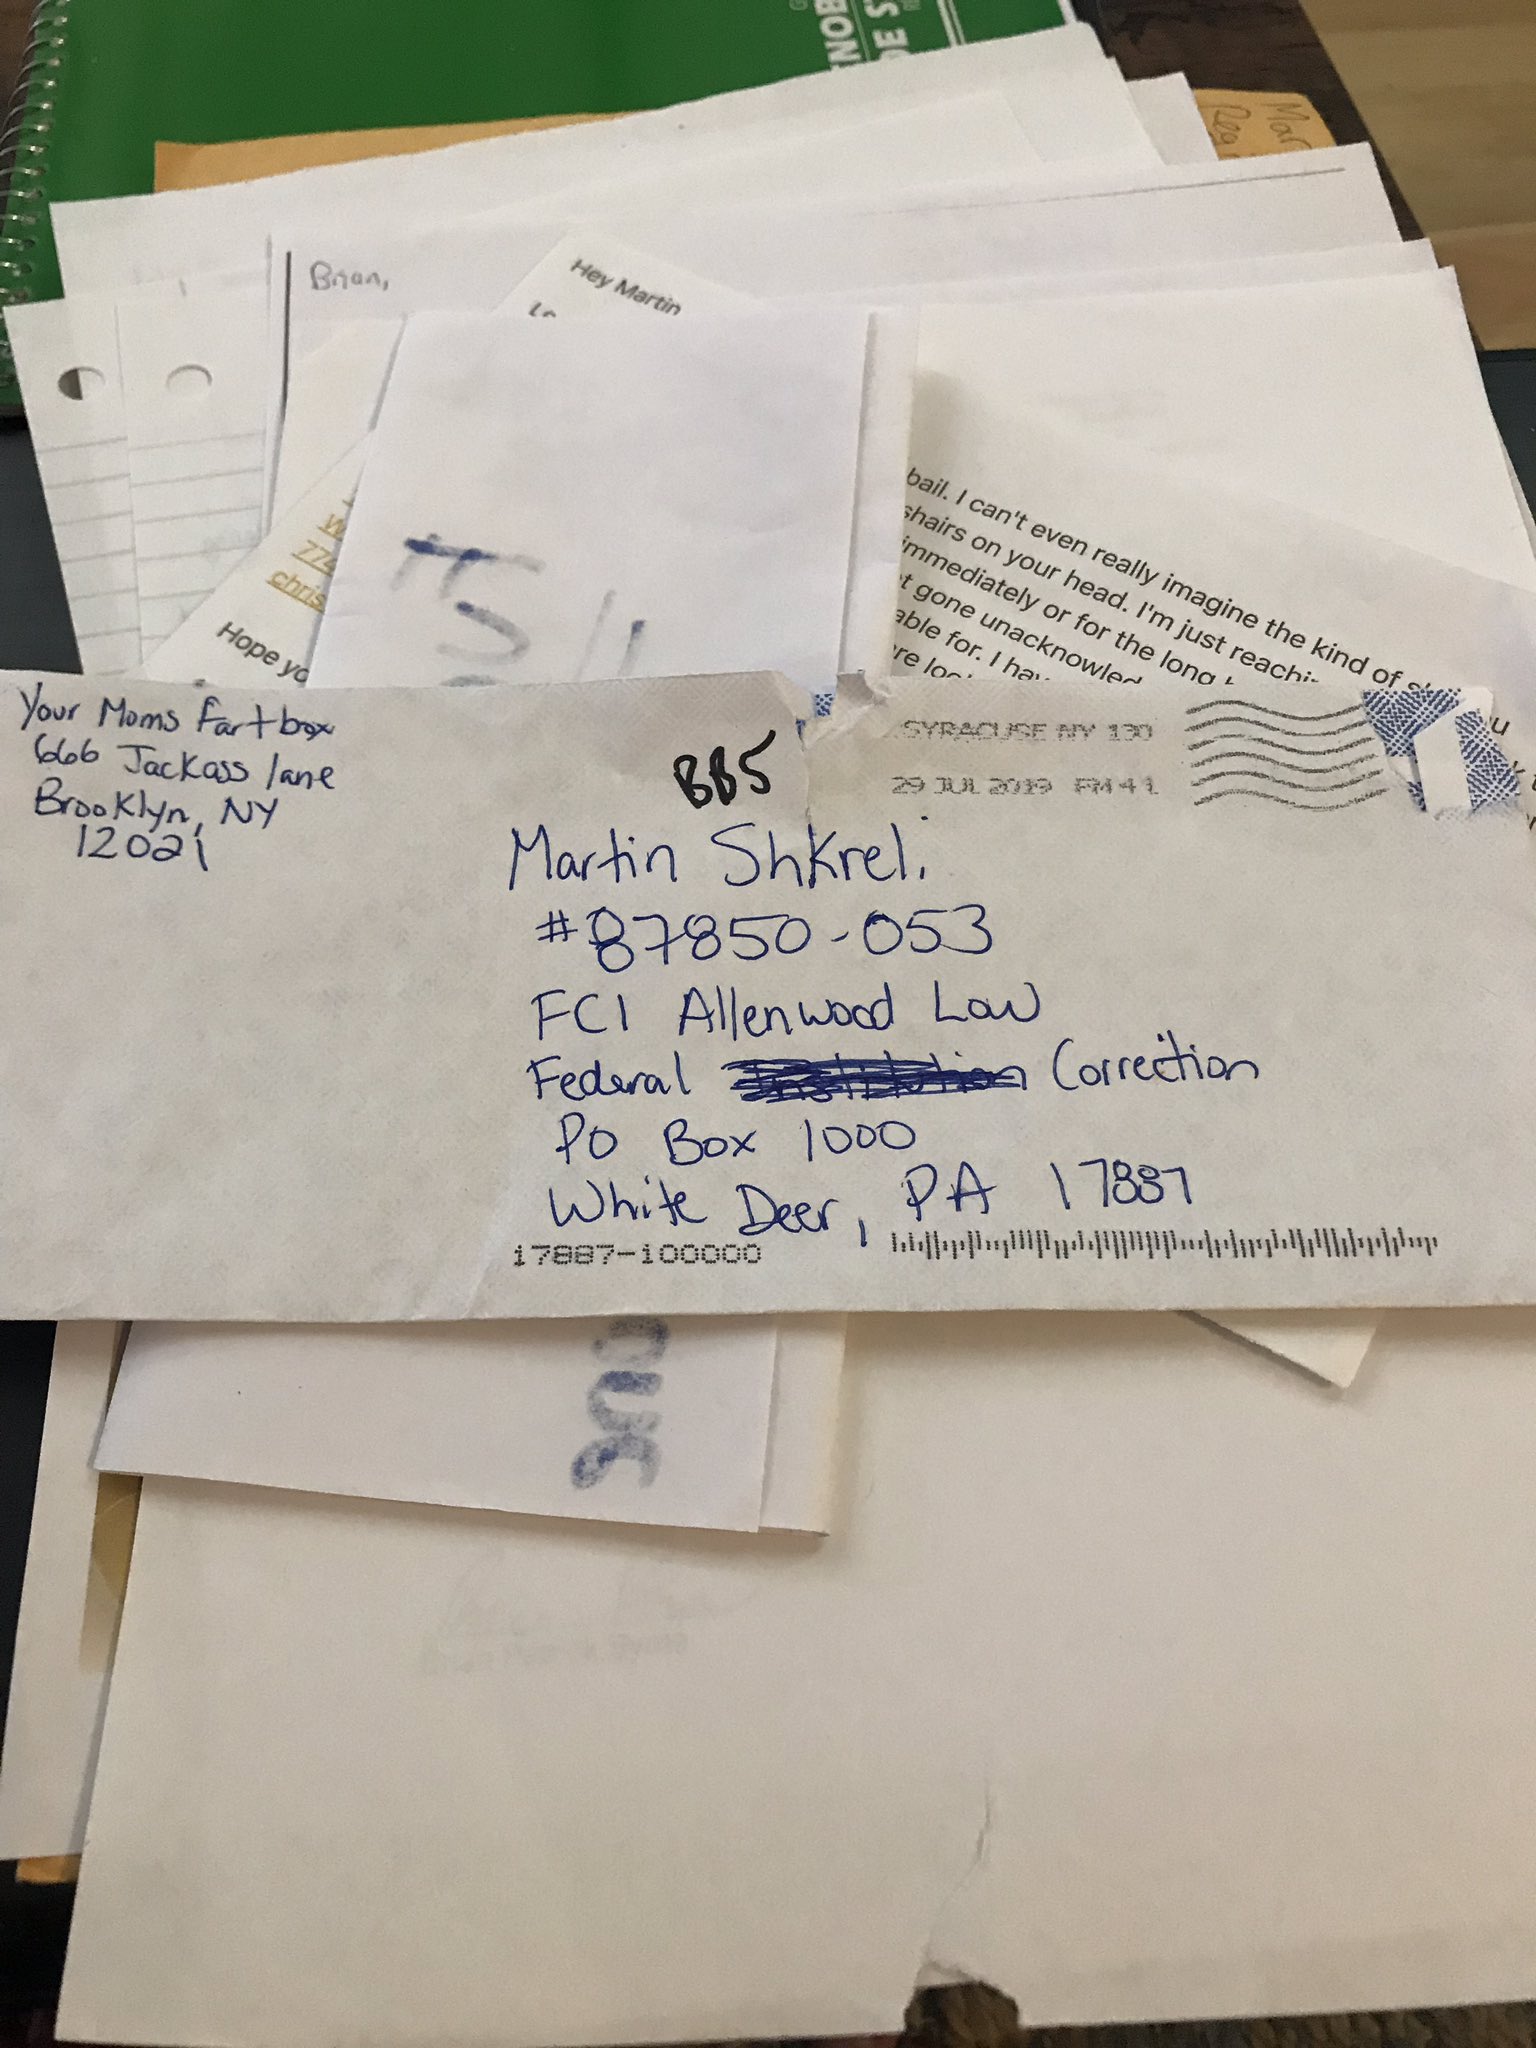 Brian,
Hey Martin
bail. I can't even really imagine the kind of
shairs on your head. I'm just reachi
immediately or for the long
t gone unacknowled
able for. I hav
re loo
chris
Hope yo
Your Moms Fartbox
666 Jackass lane
Brooklyn, NY
12021
BB5
SYRACUSE NY 130
29 JUL 2019 PM 4 L
Martin Shkreli
#87850-053
FCI Allenwood Low
Federal Correction
PO Box 1000
White Deer, PA 17887
17887-100000